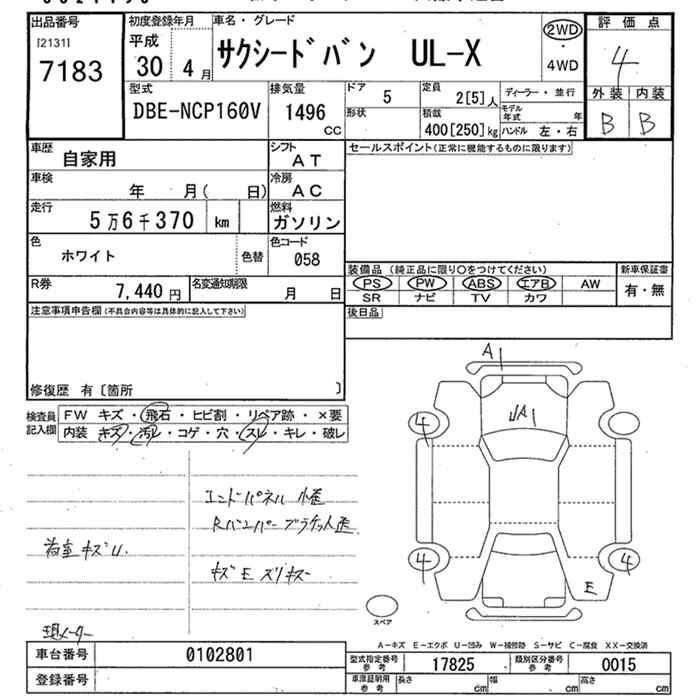 出品番号
[2131]
7183
初度登録年月
平成
30 年 4 月
車名・グレード
サクシードバン UL-X
2WD
・
4WD
評価点
4
外装 内装
B B
型式
DBE-NCP160V
排気量
1496
cc
ドア 5
形状
定員 2[5]人
積載 400[250]kg
ディーラー・並行
モデル年式 年
ハンドル 左・右
車歴
自家用
シフト
AT
車検
年 月( 日)
冷房
AC
走行
5万6千370 km
燃料
ガソリン
色
ホワイト
色替
色コード
058
R券
7,440 円
名変通知期限
月 日
セールスポイント(正常に機能するものに限ります)
装備品 (純正品に限り○をつけてください)
PS PW ABS エアB AW
SR ナビ TV カワ
新車保証書
有・無
後日品
注意事項申告欄(不具合内容等は具体的に記入して下さい)
修復歴 有〔箇所 〕
検査員記入欄
FW キズ・飛石・ヒビ割・リペア跡・×要
内装 キズ・汚レ・コゲ・穴・スレ・キレ・破レ
エンドパネル 小歪
Rバンパーブラケット歪
荷室キズU.
キズEスリキズ
現メーター
A1
UA1
4
4
4
E
スペア
A-キズ E-エクボ U-凹み W-補修跡 S-サビ C-腐食 XX-交換済
車台番号 0102801
登録番号
型式指定番号参考 17825 類別区分番号参考 0015
車庫証明用参考 長さ cm 幅 cm 高さ cm